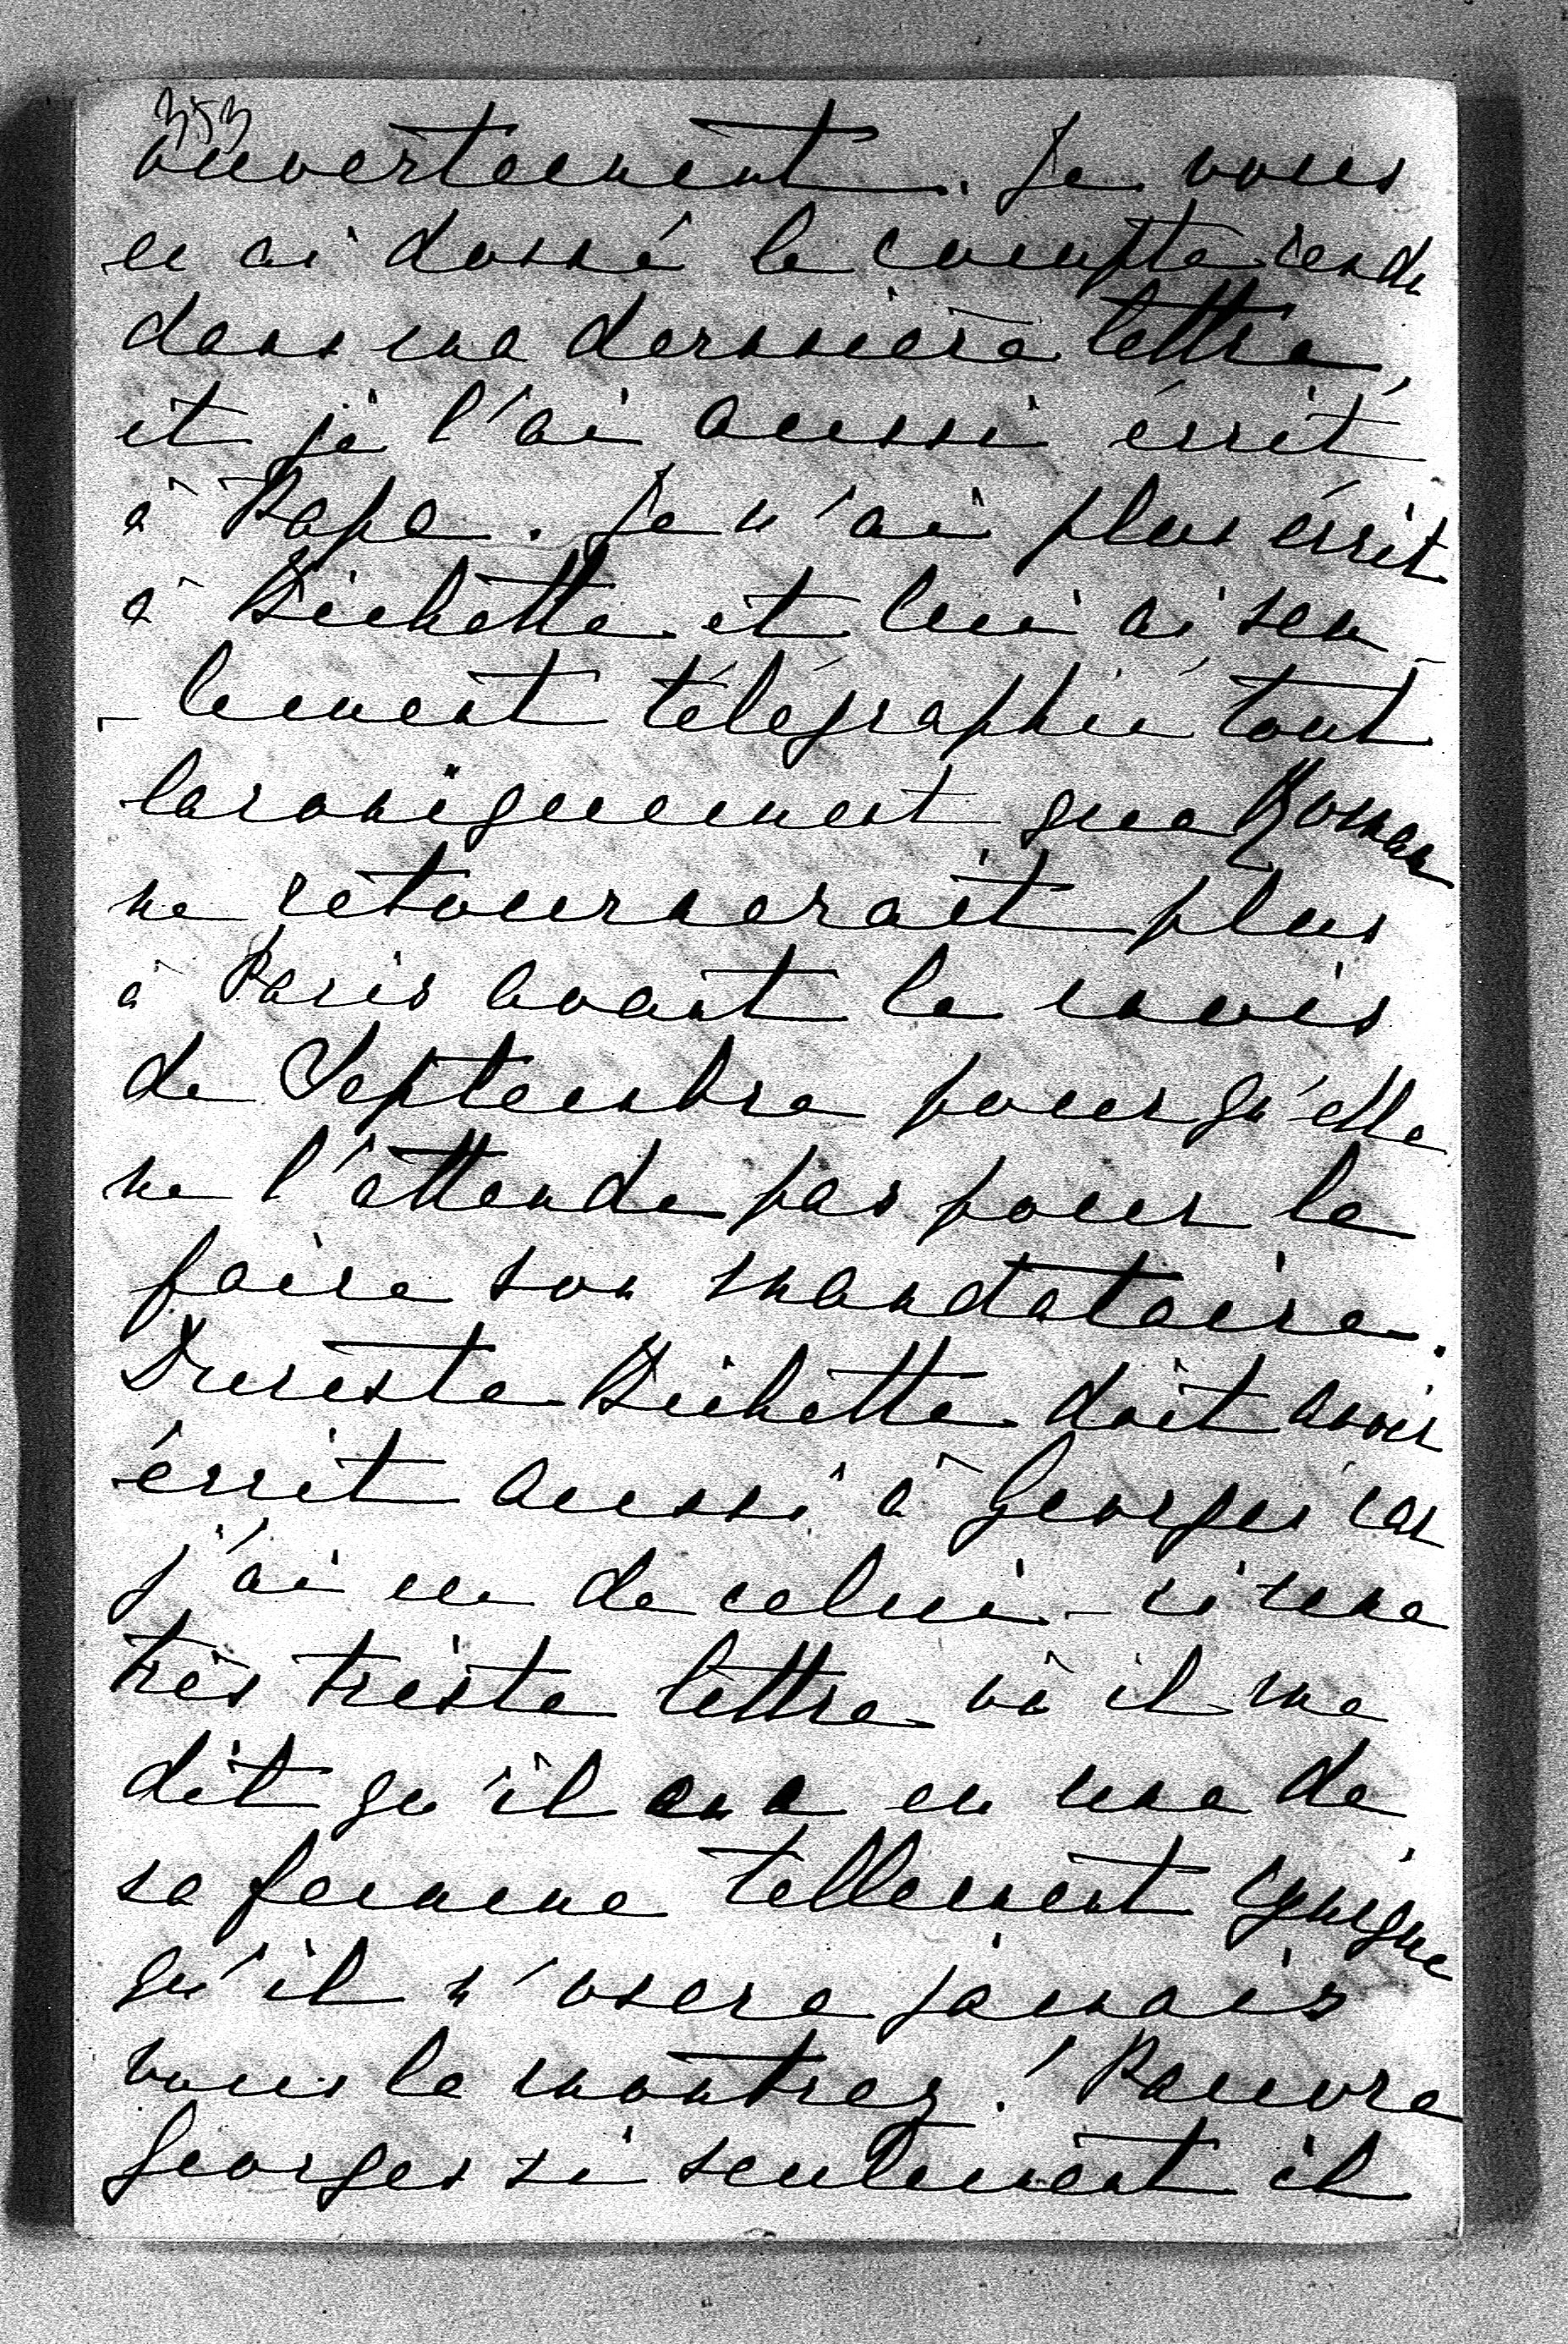 353
ouvertement. Je vous
en ai donné le compte-rendu
dans ma dernière lettre,
et je l'ai aussi écrit
à Papa. Je n'ai plus écrit
à Bichette et lui ai seu-
-lement télégraphié tout
laconiquement que Roman
ne retournerait plus
à Paris avant le mois
de Septembre pour qu'elle
ne l'attende pas pour le
faire son mandataire.
Dureste Bichette doit avoir
écrit aussi à Georges car
j'ai eu de celui-ci une
très triste lettre où il me
dit qu'il en a eu une de
sa femme tellement cynique
qu'il n'osera jamais
vous la montrer! Pauvre
Georges si seulement il